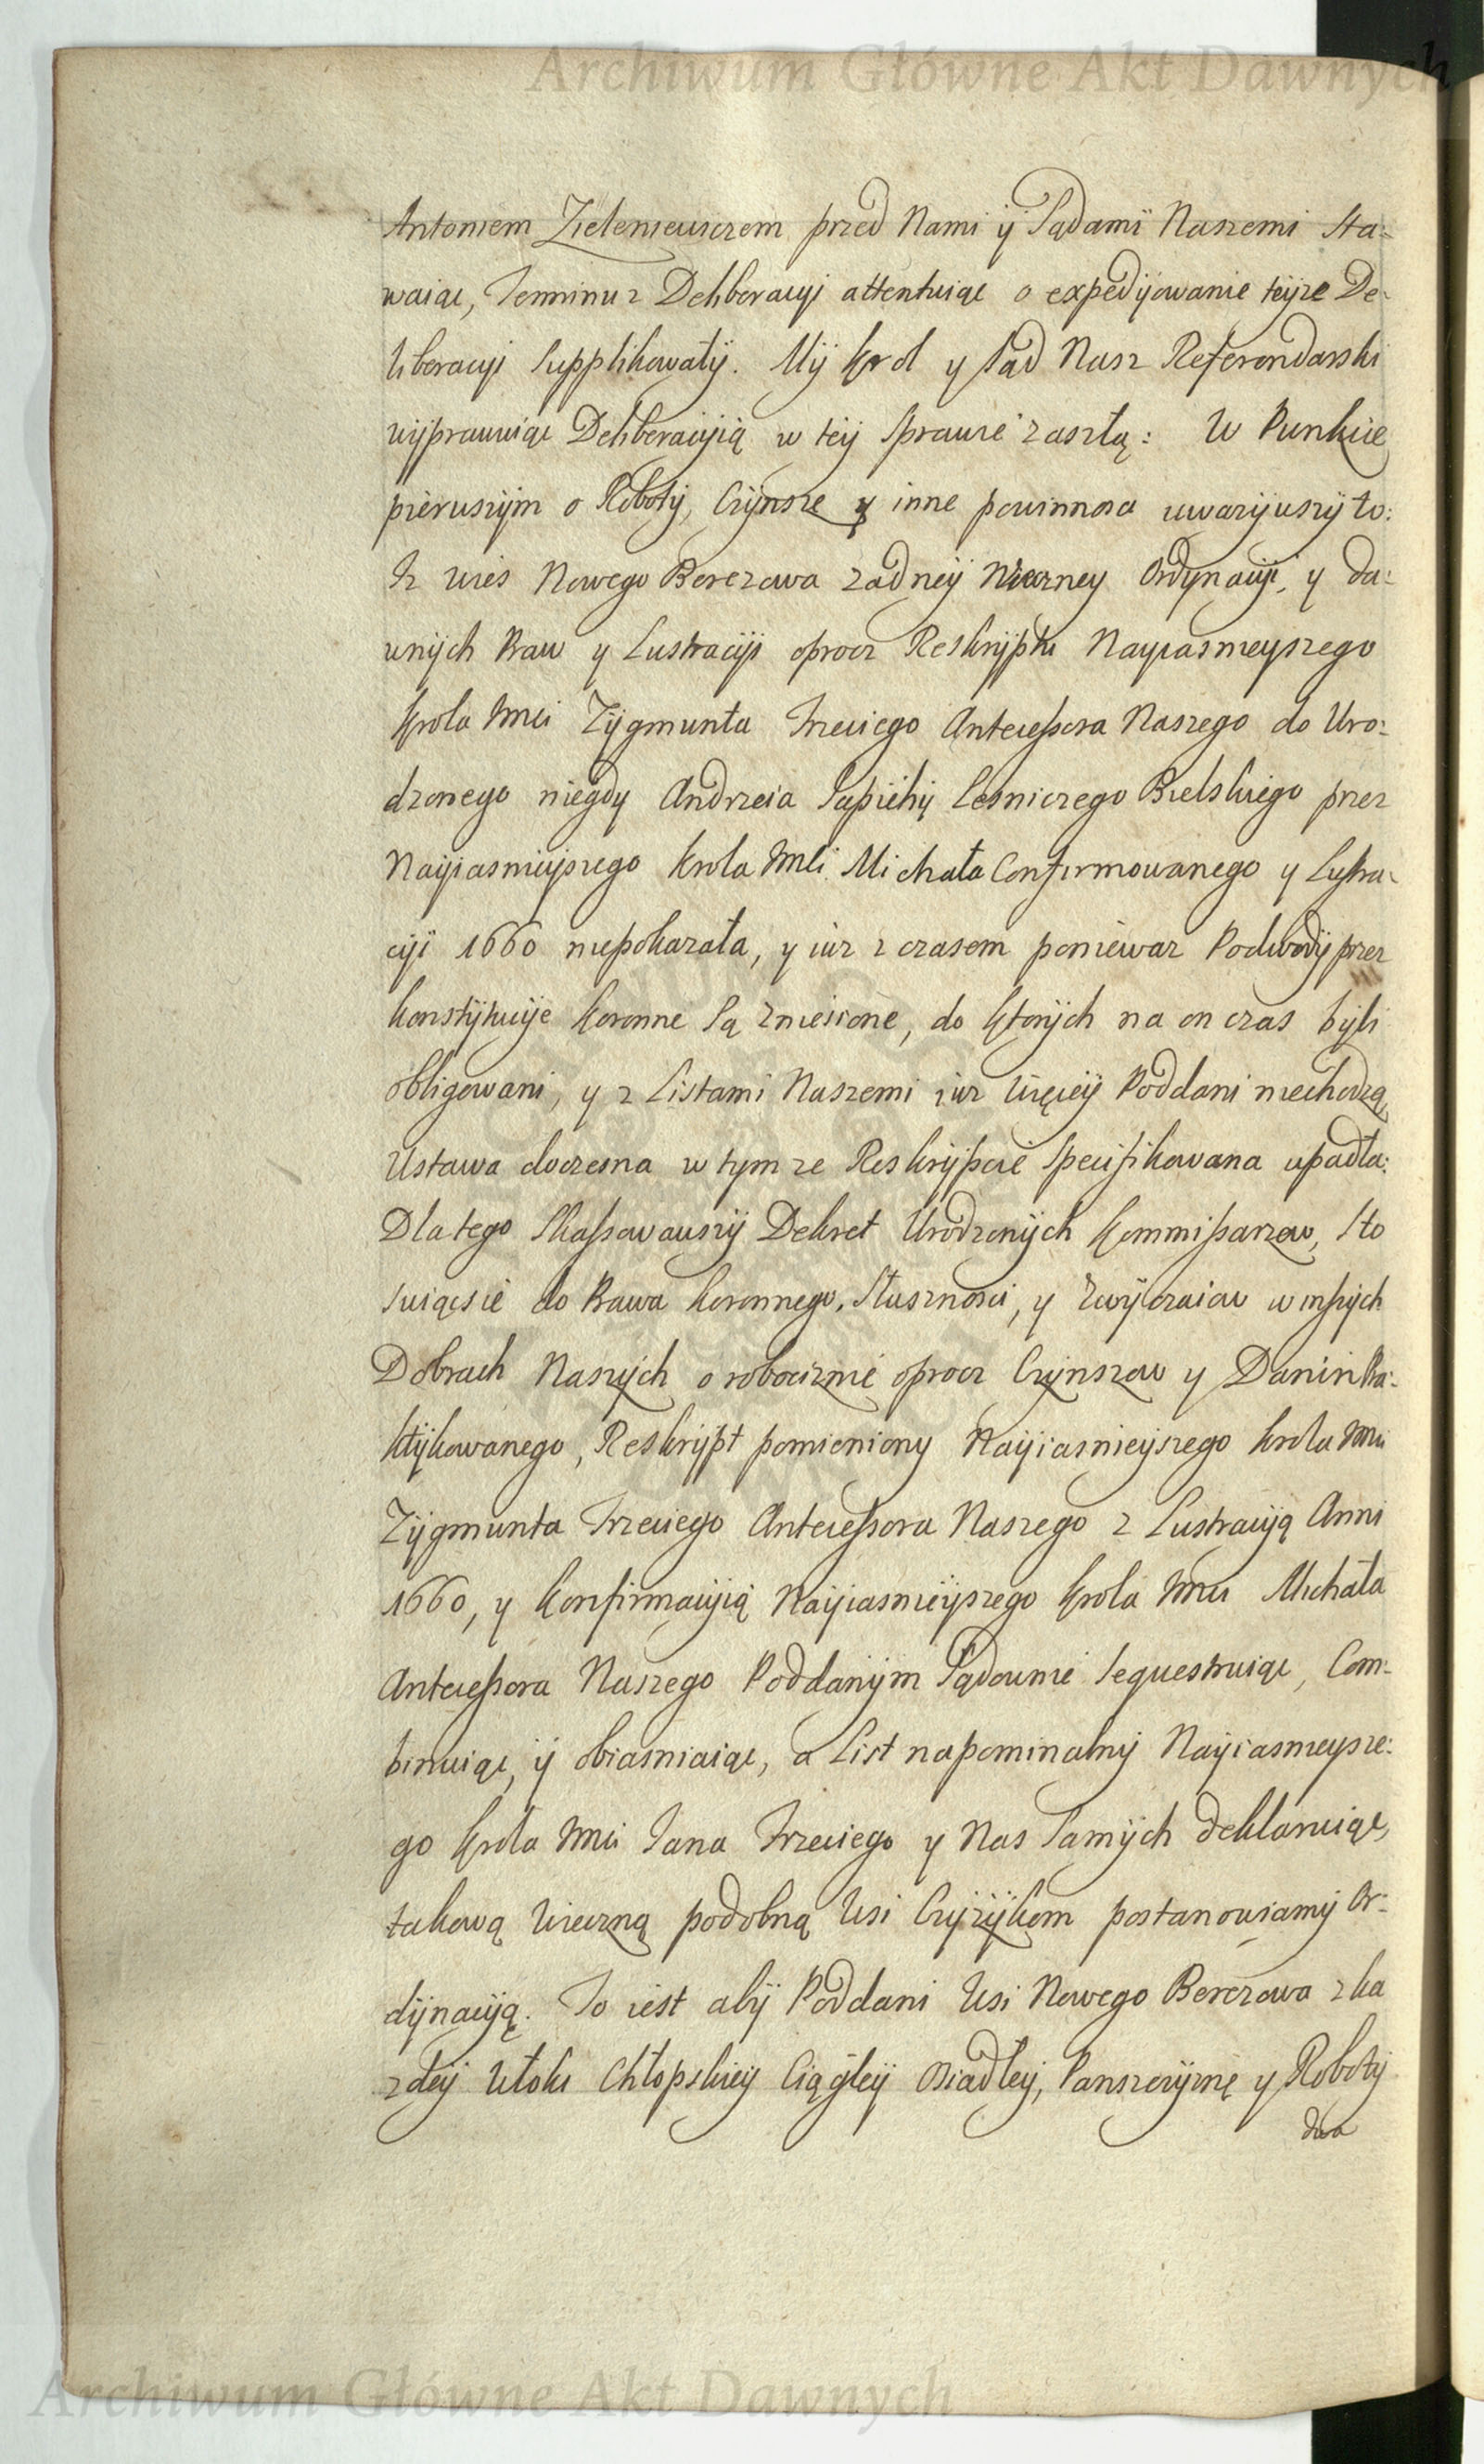 Archiwum Główne Akt Dawnych
Antoniem Zieleniewiczem przed Nami ÿ Sądami Naszemi sta=
waiąc, Terminu z Deliberacyi attentuiąc o expedÿiowanie teÿze De=
liberacyi supplikowałÿ. Mÿ Krol y Sąd Nasz Referendarski
wÿprawuiąc Deliberacÿią w teÿ sprawie zaszłą: W Punkcie
pierwszÿm o Robotÿ, Czÿnsze y inne powinnosci uwazÿwszÿ to:
Iz wies Nowego Berezowa zadneÿ Wieczney Ordynacyi, y da=
wnÿch Praw y Lustracÿi oprocz Reskrÿptu Nayiasnieyszego
Krola Jmci Zÿgmunta Trzeciego Antecessora Naszego do Uro=
dzonego niegdy Andrzeia Sapiehÿ Lesniczego Bielskiego przez
Naÿiasnieÿszego Krola Jmci Michała Confirmowanego y Lustra=
cÿi 1660 niepokazała, y iuz z czasem poniewaz Podwodÿ przez
Konstÿtucÿe Koronne są zniesione, do ktorÿch na on czas bÿli
obligowani, y z Listami Naszemi iuz więceÿ Poddani niechodzą,
Ustawa doczesna w tym ze Reskrÿpcie specifikowana upadła:
Dla tego skassowawszÿ Dekret Urodzonÿch Kommissarzow, sto
suiącsie do Prawa Koronnego, Słusznosci, y Zwÿczaiow w inszÿch
Dobrach Naszÿch o robociznie oprocz Czÿnszow y Danin Pra=
ktÿkowanego, Reskrÿpt pomieniony Naÿiasnieÿszego Krola Jmci
Zÿgmunta Trzeciego Antecessora Naszego z Lustracÿą Anni
1660, y Konfirmacÿią Naÿiasnieÿszego Krola Jmci Michała
Antecessora Naszego Poddanÿm Sądownie sequestruiąc, Com=
binuiąc, ÿ obiasniaiąc, a List napominalnÿ Naÿiasnieysze=
go Krola Jmci Jana Trzeciego y Nas Samÿch deklaruiąc,
takową Wieczną podobną Wsi Czÿzÿkom postanowiamÿ Or=
dÿnacÿą. To iest abÿ Poddani Wsi Nowego Berezowa z ka
zdeÿ Włoki Chłopskieÿ Ciągłeÿ Osiadłeÿ, Panszczÿznę y Robotÿ
dwa
Archiwum Główne Akt Dawnych